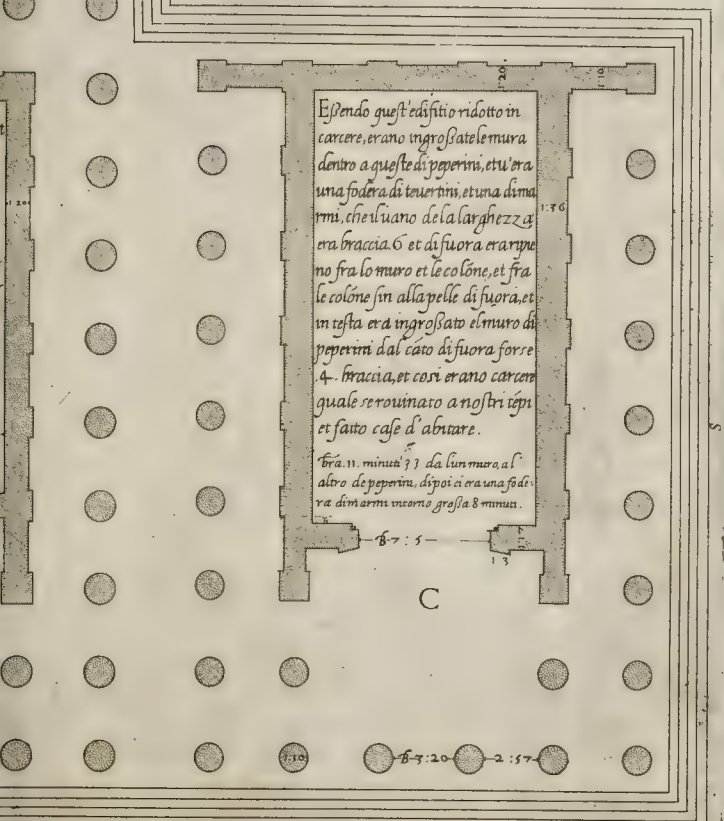 1·20·
1·10
Eſſendo queſt'edifitio ridotto in
carcere, erano ingroſſate le mura
dentro a queſte di peperini, et u'era
una fodera di teuertini, et una dima
rmi, che il uano de la larghezza
era braccia 6 et di fuora era ripie
no fra lo muro et le colóne, et fra
le colóne ſin alla pelle di fuora, et
in teſta era ingroſſato el muro di
peperini dal cáto di fuora forse
.4. braccia, et cosi erano carcere
quale se rouinato a noſtri tépi
et fatto caſe d'abitare.
bra. 11. minuti 33 da lun muro, al
altro de peperini, dipoi ci era una fode:
ra di marmi intorno groſſa 8 minuti.
1·20·
1:36
B·7:5
1:17
1 3
C
1:30
B·3:20
2:57
S